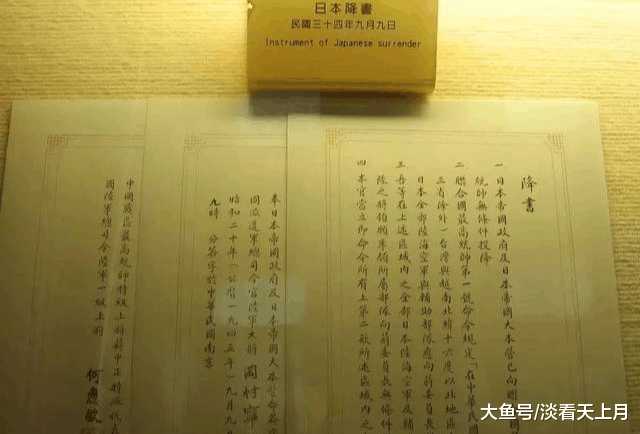 日本降書
民國三十四年九月九日
Instrument of Japanese surrender
降書
一 日本帝國政府及日本帝國大本營已向聯
統帥無條件投降
二 聯合國最高統帥第一號命令規定「在中華民國
三省除外）台灣與越南北緯十六度以北地區
日本全部陸海空軍與輔助部隊應向蔣委員長
三 吾等在上述區域內之全部日本陸海空軍及輔
隊之將領願率領所屬部隊向蔣委員長無條
四 本官當立即命令所有上第二款所述區域內之
奉日本帝國政府及日本帝國大本營命簽字
國派遣軍總司令官陸軍大將 岡村寧
昭和二十年（公曆一九四五年）九月九日
九時 分簽字於中華民國南京
中國戰區最高統帥特級上將蔣中正特派代表
國陸軍總司令陸軍一級上將 何應欽
大鱼号/淡看天上月